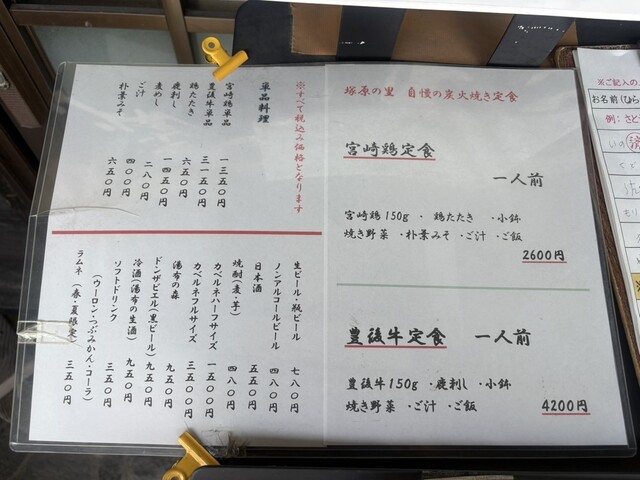 ※すべて税込み価格となります
単品料理
宮崎鶏単品 一三五〇円
豊後牛単品 三一五〇円
鶏たたき 六五〇円
鹿刺し 一四五〇円
煮めし 二八〇円
ご汁 四〇〇円
朴葉みそ 六五〇円
生ビール・瓶ビール 七八〇円
ノンアルコールビール 四八〇円
日本酒 五五〇円
焼酎(麦・芋) 四八〇円
カベルネハーフサイズ 一五〇〇円
カベルネフルサイズ 三五〇〇円
湯布の森 九五〇円
ドンザビエル(黒ビール) 九五〇円
冷酒(湯布の生酒) 九五〇円
ソフトドリンク 三五〇円
(ウーロン・つぶみかん・コーラ)
ラムネ(春・夏限定) 三五〇円
塚原の里 自慢の炭火焼き定食
宮崎鶏定食
一人前
宮崎鶏150g ・ 鶏たたき ・小鉢
焼き野菜 ・朴葉みそ ・ご汁 ・ご飯
2600円
豊後牛定食 一人前
豊後牛150g ・鹿刺し ・小鉢
焼き野菜 ・ご汁 ・ご飯
4200円
※ご記入の
お名前(ひら
例: さと